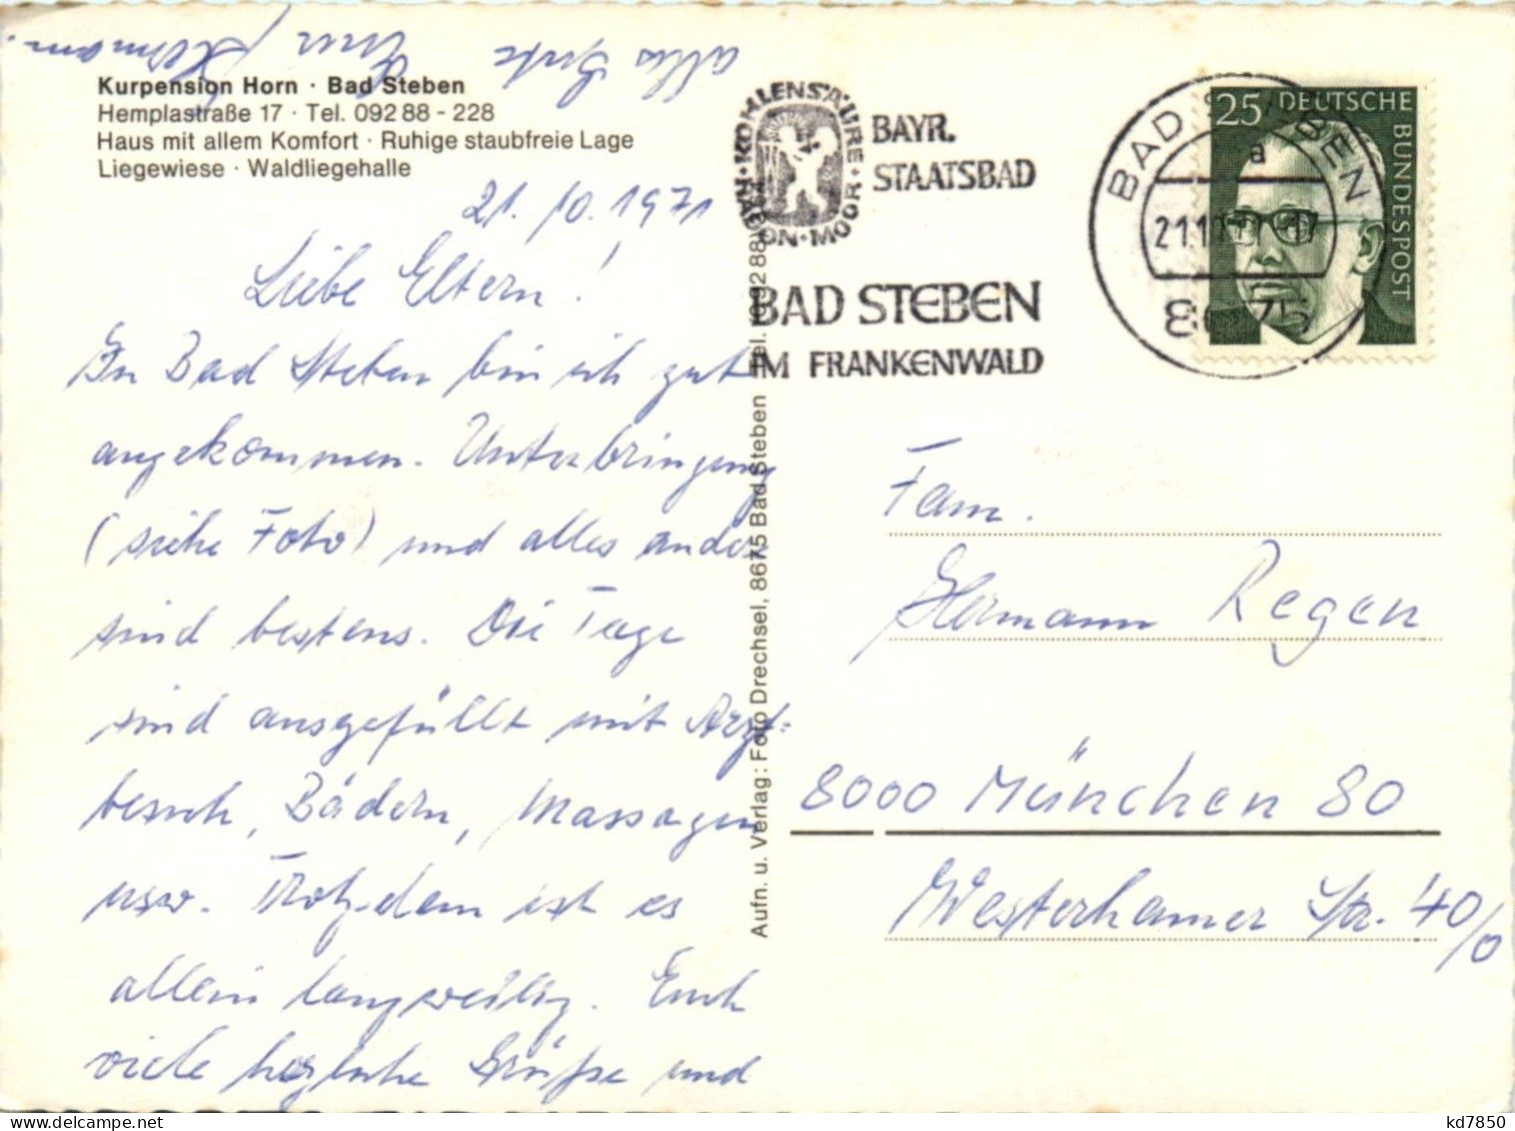 Kurpension Horn · Bad Steben
Hemplastraße 17 · Tel. 092 88 - 228
Haus mit allem Komfort · Ruhige staubfreie Lage
Liegewiese · Waldliegehalle
21. 10. 1971
Liebe Eltern!
In Bad Steben bin ich gut
angekommen. Unterbringung
(siehe Foto) und alles andere
sind bestens. Die Tage
sind ausgefüllt mit Arzt=
besuch, Bädern, Massagen
usw. Trotzdem ist es
allein langweilig. Euch
viele herzliche Grüße und
alles Gute Euer Hermann.
Aufn. u. Verlag: Foto Drechsel, 8675 Bad Steben
KOHLENSÄURE · MOOR · RADON
BAYR.
STAATSBAD
BAD STEBEN
IM FRANKENWALD
BAD STEBEN
a
8675
25 DEUTSCHE
BUNDESPOST
Fam.
Hermann Regen
8000 München 80
Westerhamer Str. 40/0
kd7850